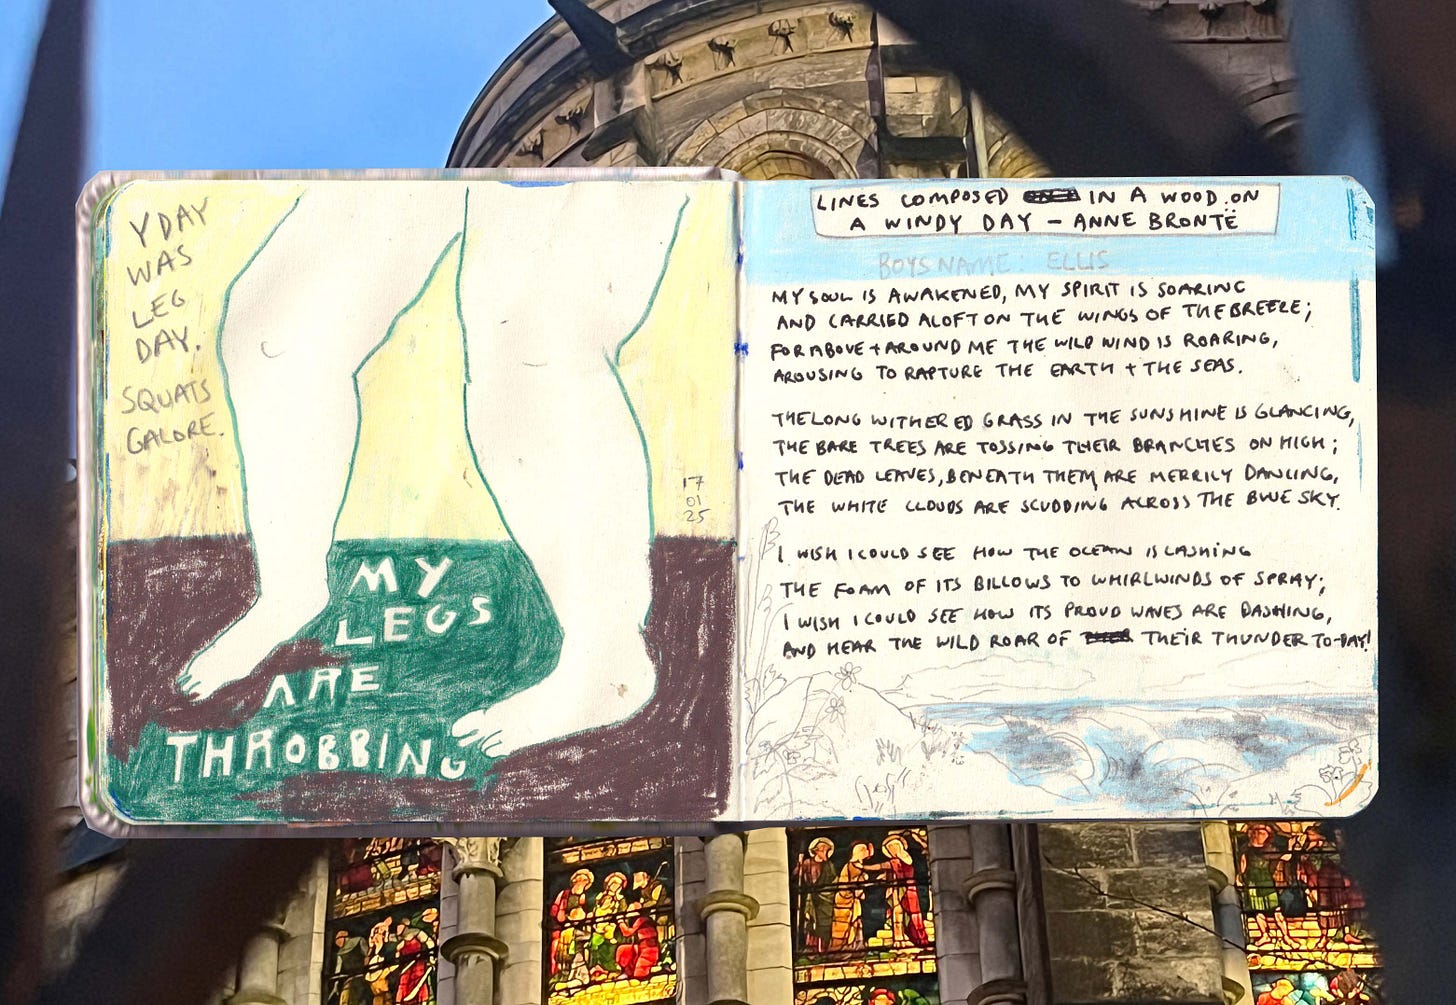 Y DAY
WAS
LEG
DAY.
SQUATS
GALORE.
17
01
25
MY
LEGS
ARE
THROBBING
LINES COMPOSED IN A WOOD ON
A WINDY DAY – ANNE BRONTË
BOYS NAME: ELLIS
MY SOUL IS AWAKENED, MY SPIRIT IS SOARING
AND CARRIED ALOFT ON THE WINGS OF THE BREEZE;
FOR ABOVE + AROUND ME THE WILD WIND IS ROARING,
AROUSING TO RAPTURE THE EARTH + THE SEAS.
THE LONG WITHERED GRASS IN THE SUNSHINE IS GLANCING,
THE BARE TREES ARE TOSSING THEIR BRANCHES ON HIGH;
THE DEAD LEAVES, BENEATH THEM, ARE MERRILY DANCING,
THE WHITE CLOUDS ARE SCUDDING ACROSS THE BLUE SKY.
I WISH I COULD SEE HOW THE OCEAN IS LASHING
THE FOAM OF ITS BILLOWS TO WHIRLWINDS OF SPRAY;
I WISH I COULD SEE HOW ITS PROUD WAVES ARE DASHING,
AND HEAR THE WILD ROAR OF THEIR THUNDER TO-DAY!